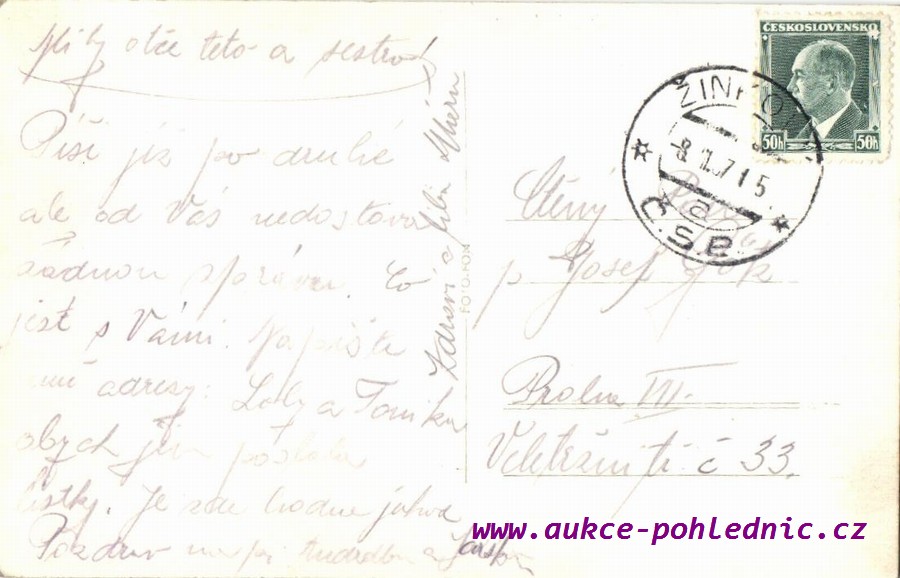 Milý otče teto a sestro
Píši již po druhé
ale od Vás nedostava
žádnou správu. Co
jest s Vámi. Napište
mi adresy: Lády a Toníka
abych jim poslala
lístky. Je zde hodně jahod
Pozdrav
Zdraví a líbá
FOTO-FON
ČESKOSLOVENSKO
50h 50h
ŽINKOV
a
Č.S.P.
Ctěný Pán
p. Josef
Praha VII.
Veletržní tř. č 33.
www.aukce-pohlednic.cz